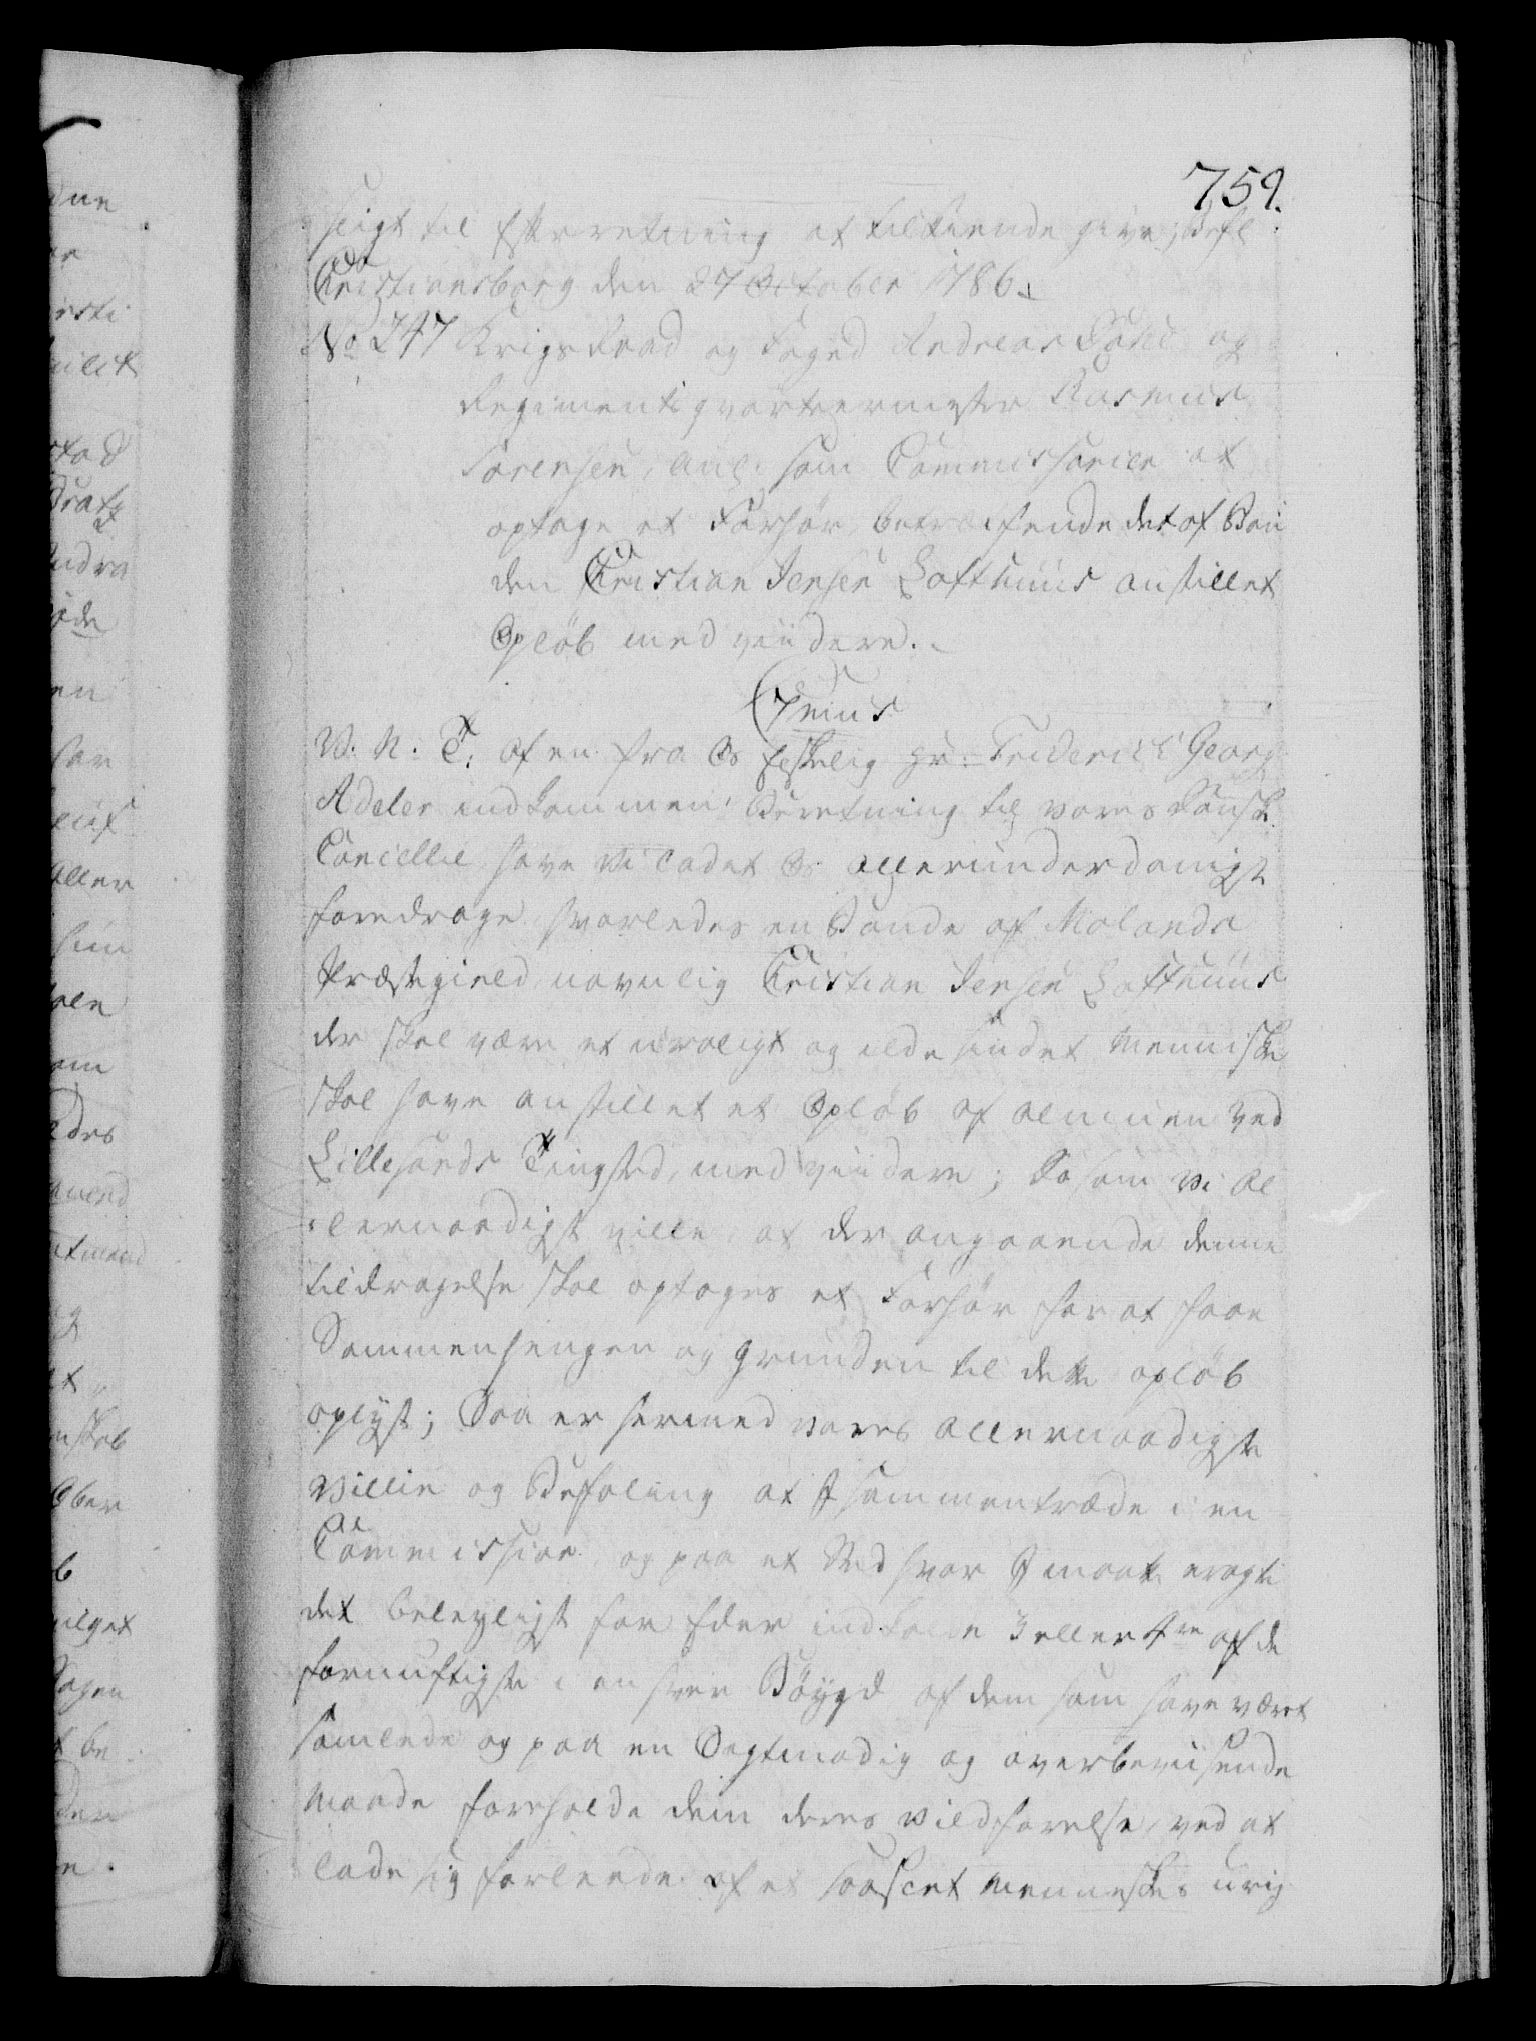 759.
seigt til Efterretning at tilkiende give; Befl
Christiansborg den 27 October 1786.
No 247 KrigsRaad og Foged Andreas og
Regimentsqvarteermester Rasmus
Sørensen, anl: som Commissarier at
optage et Forhør, betræffende det af Bon
den Christian Jensen Lofthuus anstillet
Opløb med viidere.
C 7mus
V. N. T. Af en fra Os Elskelig Hr: Friderich Georg
Adeler indkommen Beretning til vores Danske
Cancellie, have Vi ladet Os allerunderdanigst
foredrage, hvorledes en Bonde af Molands
Præstegield, navnlig Christian Jensen Lofthuus
der skal være et uroligt og ilde sindet Menniske
skal have anstillet et Opløb af almuen ved
Lillesands Tingsted, med viidere; Da som vi al
lernaadigst ville at der angaaende denne
tildragelse skal optages et Forhør for at faae
Sammenhengen og grunden til dette opløb
oplyst; Saa er hermed vores allernaadigste
Villie og Befaling at I sammentræde i en
Commission, og paa et Sted hvor I maatte eragte
det beleyligst for Eder indkalde 3 eller 4re af de
fornuftigste i en hver Bøygd af dem som have været
samlede og paa en Sagtmodig og overbeviisende
Maade foreholde dem deres vildfarelse, ved at
lade sig forleede af et saadant Menneskes urig